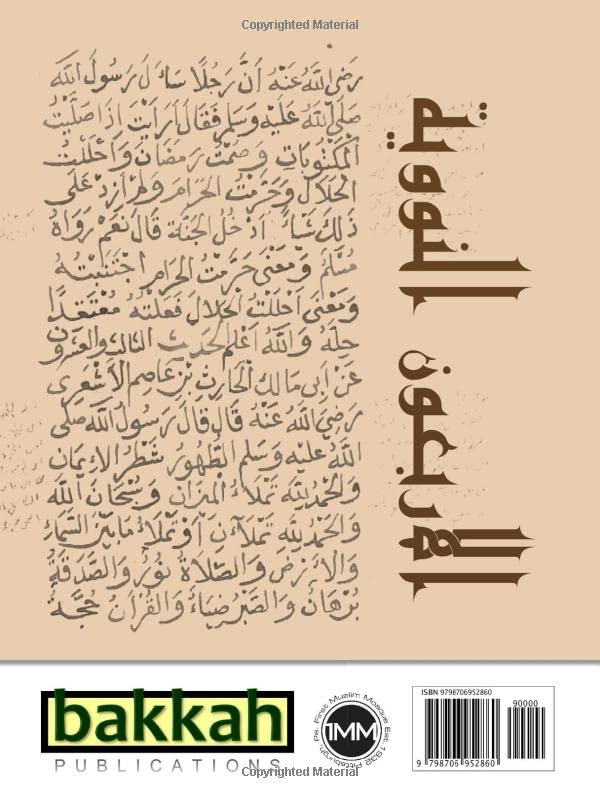 Copyrighted Material
رَضِيَ اللَّهُ عَنْهُ أَنَّ رَجُلًا سَاءَلَ رَسُولَ اللَّهِ
صَلَّى اللَّهُ عَلَيْهِ وَسَلَّمَ فَقَالَ أَرَأَيْتَ إِذَا صَلَّيْتُ
الْمَكْتُوبَاتِ وَصُمْتُ رَمَضَانَ وَأَحْلَلْتُ
الْحَلَالَ وَحَرَّمْتُ الْحَرَامَ وَلَمْ أَزِدْ عَلَى
ذَلِكَ شَيْأً أَدْخُلُ الْجَنَّةَ قَالَ نَعَمْ رَوَاهُ
مُسْلِمٌ وَمَعْنَى حَرَّمْتُ الْحَرَامَ اجْتَنَبْتُهُ
وَمَعْنَى أَحْلَلْتُ الْحَلَالَ فَعَلْتُهُ مُعْتَقِدًا
حِلَّهُ وَاللَّهُ أَعْلَمُ الْحَدِيثُ الثَّالِثُ وَالْعِشْرُونَ
عَنْ أَبِي مَالِكٍ الْحَارِثِ بْنِ عَاصِمٍ الْأَشْعَرِي
رَضِيَ اللَّهُ عَنْهُ قَالَ قَالَ رَسُولُ اللَّهِ صَلَّى
اللَّهُ عَلَيْهِ وَسَلَّمَ الطُّهُورُ شَطْرُ الْإِيمَانِ
وَالْحَمْدُ لِلَّهِ تَمْلَاءُ الْمِيزَانَ وَسُبْحَانَ اللَّهِ
وَالْحَمْدُ لِلَّهِ تَمْلَآنِ أَوْ تَمْلَاءُ مَا بَيْنَ السَّمَاءِ
وَالْأَرْضِ وَالصَّلَاةُ نُورٌ وَالصَّدَقَةُ
بُرْهَانٌ وَالصَّبْرُ ضِيَاءٌ وَالْقُرْآنُ حُجَّةٌ
الأربعون النووية
bakkah
PUBLICATIONS
Pittsburgh, Pa. First Muslim Mosque Est. 1932
1MM
ISBN 9798706952860
90000
9 798706 952860
Copyrighted Material